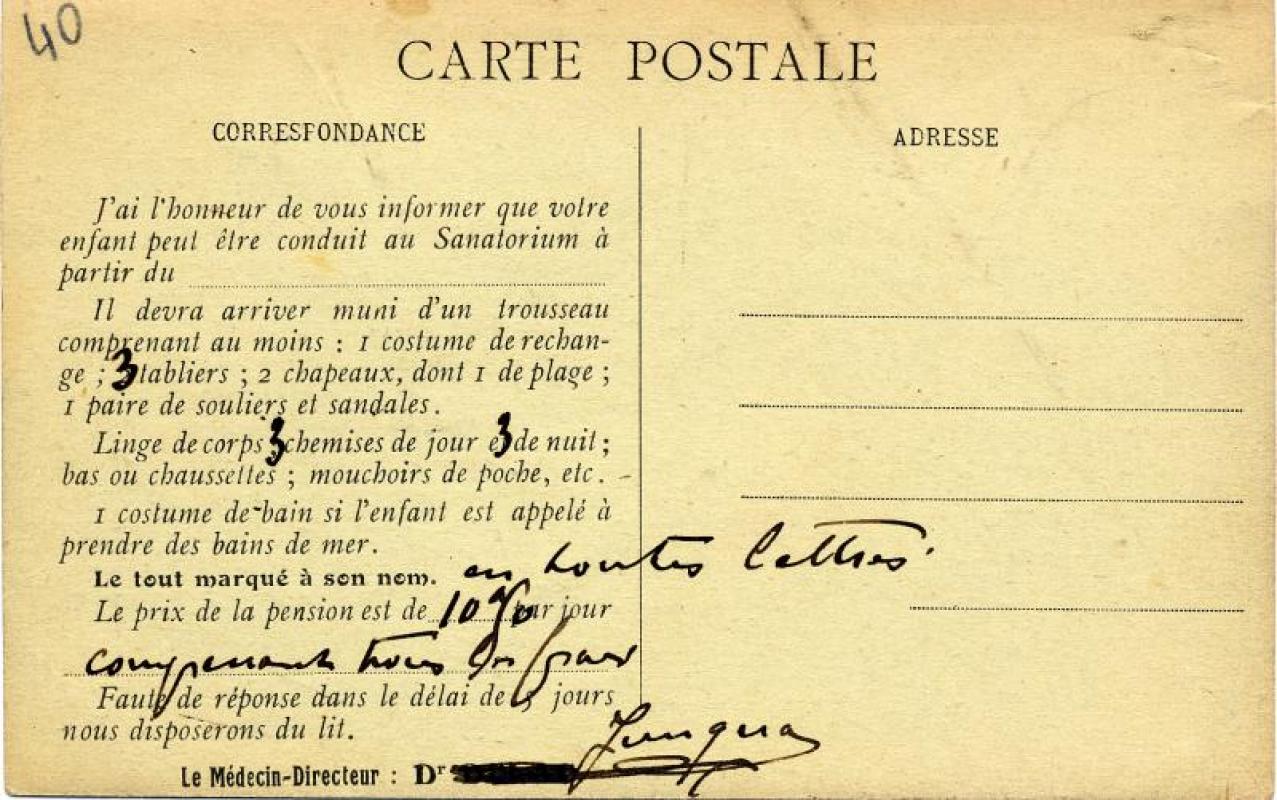 40
CARTE POSTALE
CORRESPONDANCE
J'ai l'honneur de vous informer que votre
enfant peut être conduit au Sanatorium à
partir du
Il devra arriver muni d'un trousseau
comprenant au moins : 1 costume de rechan-
ge ; 3 tabliers ; 2 chapeaux, dont 1 de plage ;
1 paire de souliers et sandales.
Linge de corps 3 chemises de jour et 3 de nuit ;
bas ou chaussettes ; mouchoirs de poche, etc.
1 costume de bain si l'enfant est appelé à
prendre des bains de mer.
Le tout marqué à son nom. en toutes lettres.
Le prix de la pension est de 10 par jour
comprenant tous les frais
Faute de réponse dans le délai de jours
nous disposerons du lit.
Le Médecin-Directeur : Dr
ADRESSE